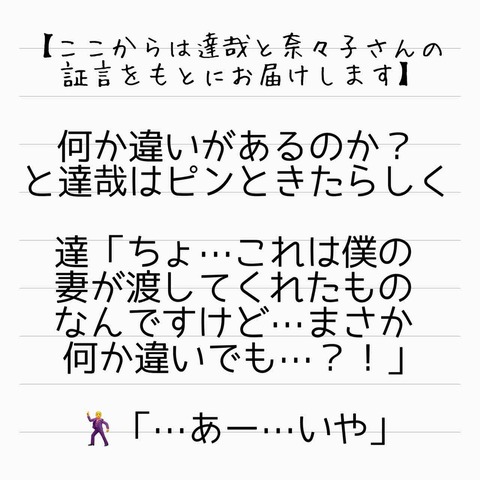 【ここからは達哉と奈々子さんの
証言をもとにお届けします】
何か違いがあるのか？
と達哉はピンときたらしく
達「ちょ…これは僕の
妻が渡してくれたもの
なんですけど…まさか
何か違いでも…？！」
🕺「…あー…いや」